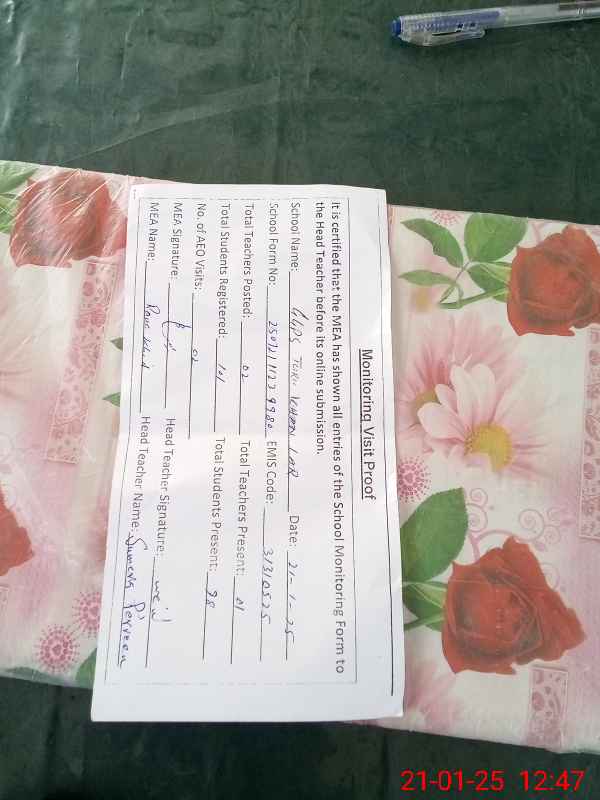 Monitoring Visit Proof
It is certified that the MEA has shown all entries of the School Monitoring Form to
the Head Teacher before its online submission.
School Name: GGPS KHAN LAR Date: 21-1-25
School Form No: EMIS Code: 31310525
Total Teachers Posted: 02 Total Teachers Present: 01
Total Students Registered: 101 Total Students Present: 98
No. of AEO Visits: 02
MEA Signature: Head Teacher Signature:
MEA Name: Head Teacher Name: Sumera Perveen
21-01-25 12:47